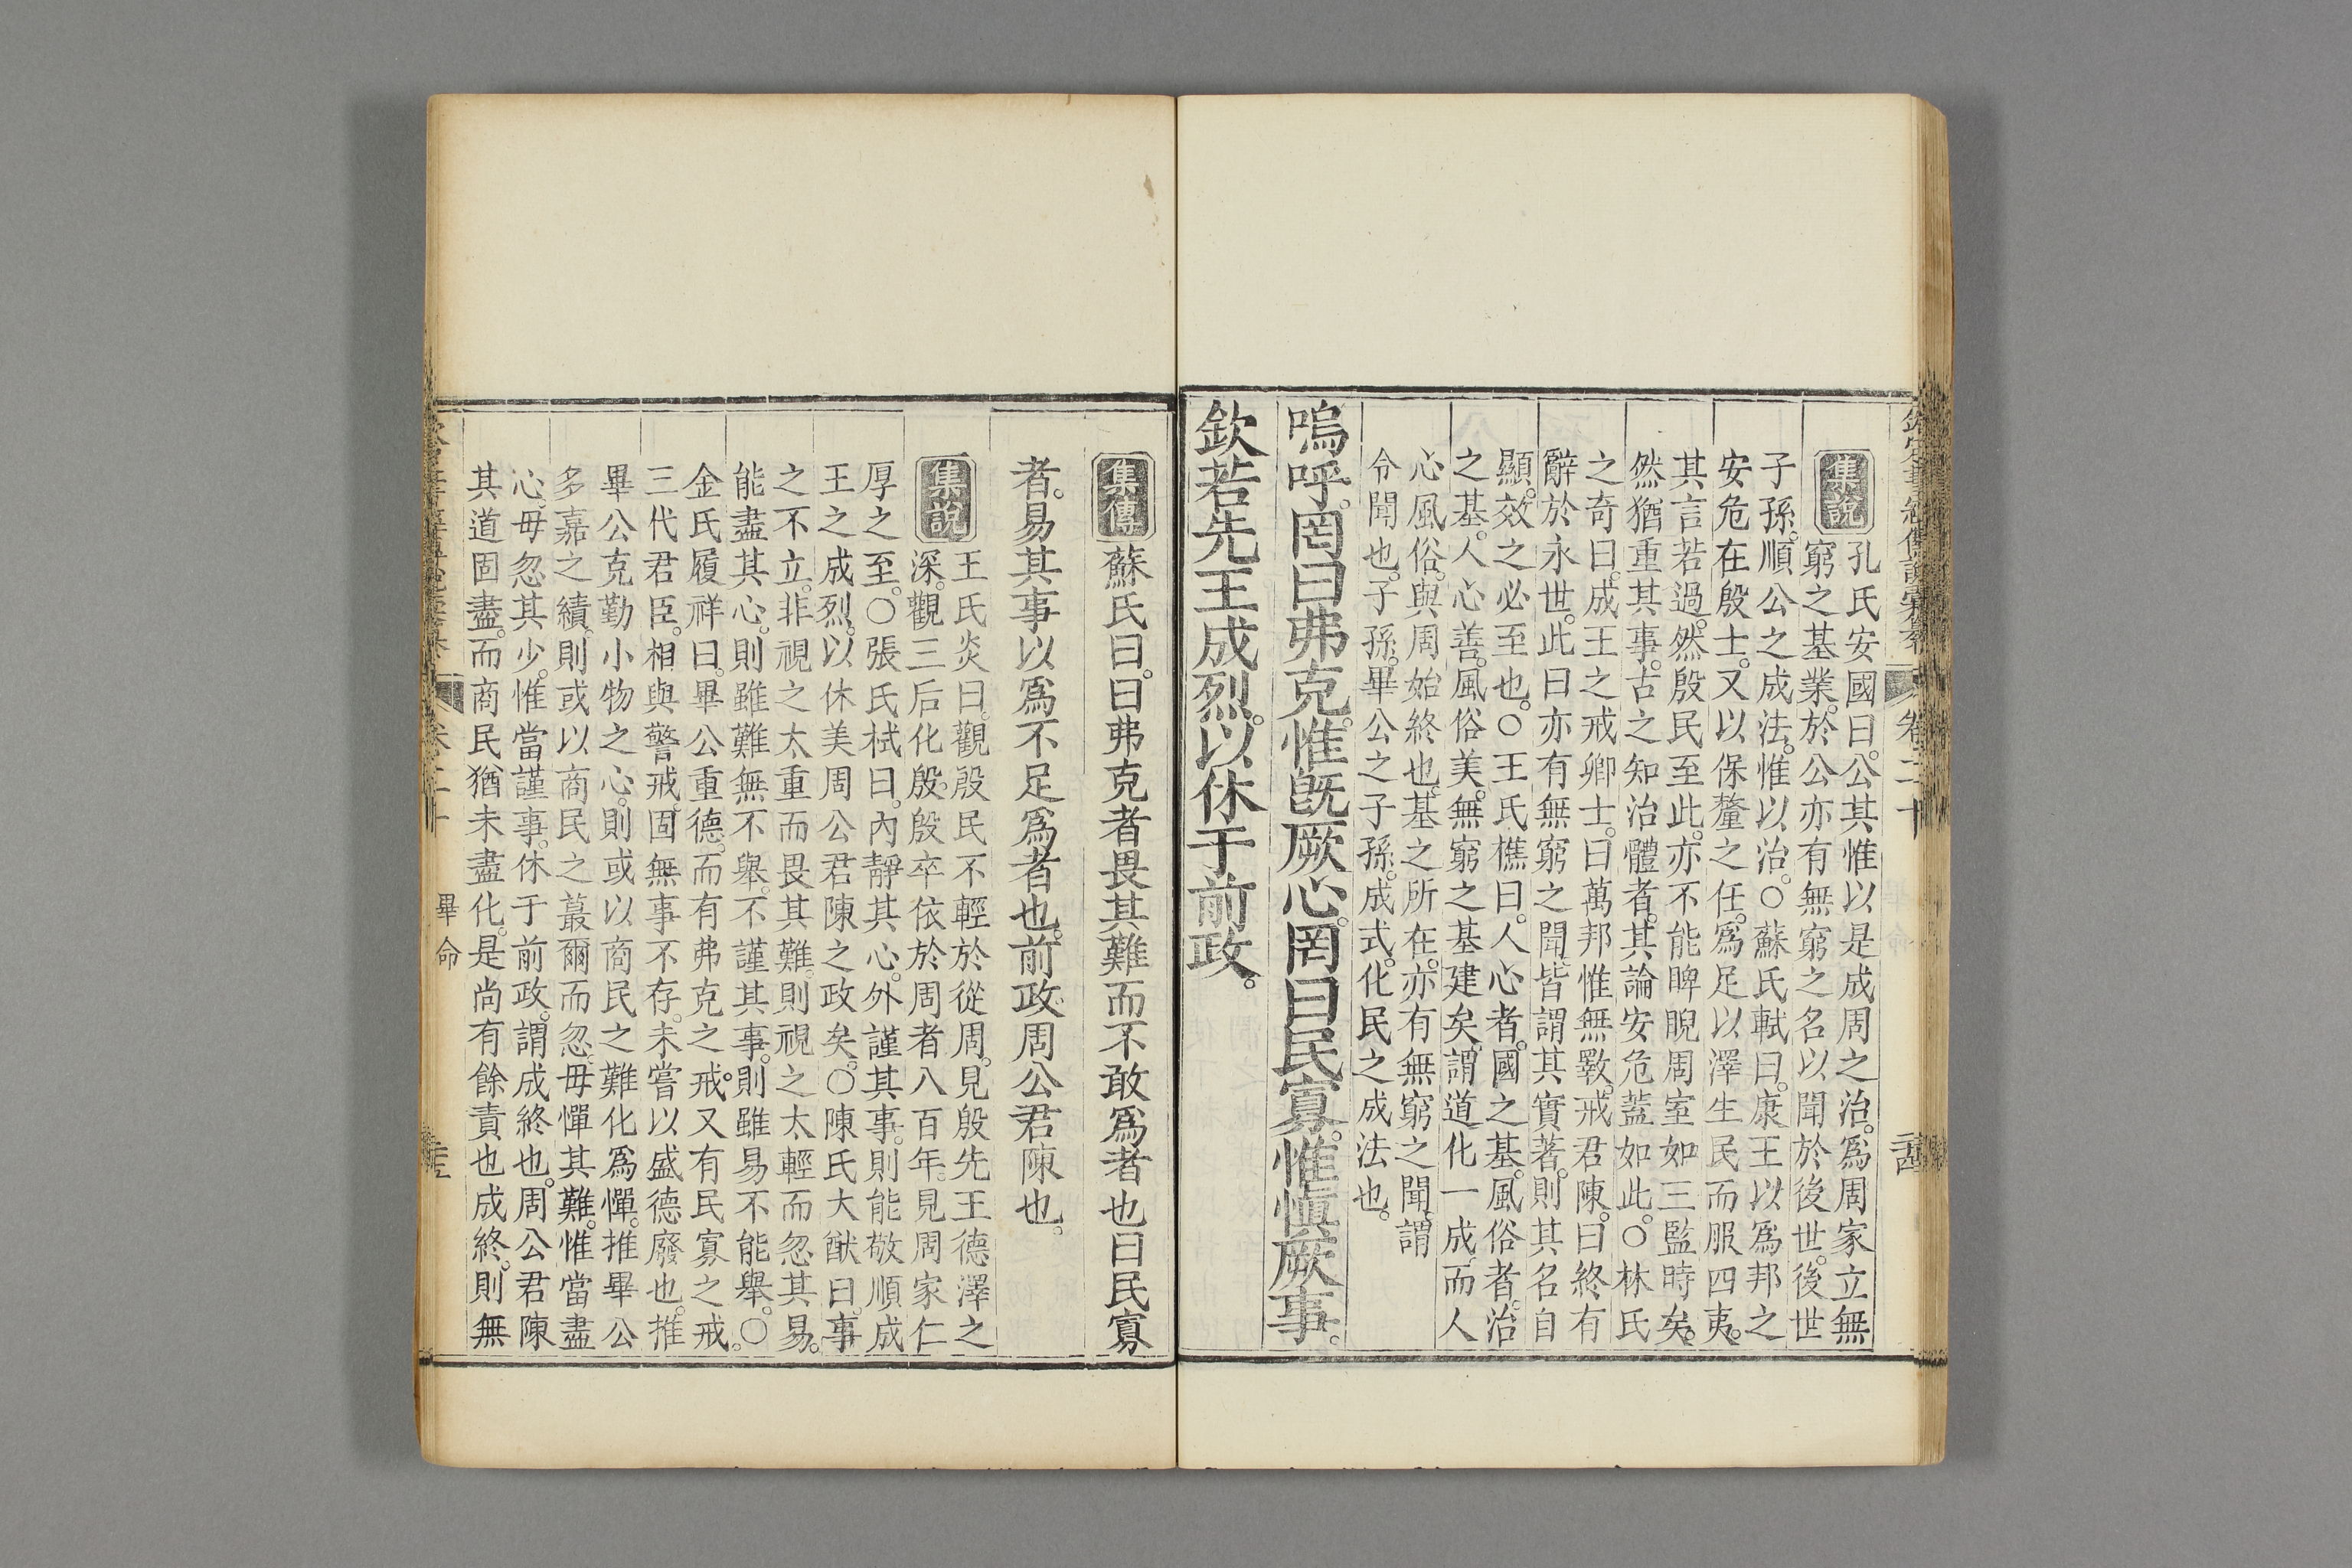 欽定書經傳說彙纂 卷二十
集說
孔氏安國曰。公其惟以是成周之治。爲周家立無
窮之基業。於公亦有無窮之名以聞於後世。後世
子孫。順公之成法。惟以治。○蘇氏軾曰。康王以爲邦之
安危在殷士。又以保釐之任。爲足以澤生民而服四夷。
其言若過。然殷民至此。亦不能睥睨周室如三監時矣。
然猶重其事。古之知治體者。其論安危蓋如此。○林氏
之奇曰。成王之戒卿士。曰萬邦惟無斁。戒君陳。曰終有
辭於永世。此曰亦有無窮之聞。皆謂其實著。則其名自
顯。效之必至也。○王氏樵曰。人心者。國之基。風俗者。治
之基。人心善。風俗美。無窮之基建矣。謂道化一成。而人
心風俗。與周始終也。基之所在。亦有無窮之聞。謂
令聞也。子孫。畢公之子孫。成式。化民之成法也。
嗚呼。罔曰弗克。惟旣厥心。罔曰民寡。惟愼厥事。
欽若先王成烈。以休于前政。
集傳
蘇氏曰。曰弗克者畏其難而不敢爲者也曰民寡
者。易其事以爲不足爲者也。前政。周公君陳也。
集說
王氏炎曰。觀殷民不輕於從周。見殷先王德澤之
深。觀三后化殷。殷卒依於周者八百年。見周家仁
厚之至。○張氏栻曰。內靜其心。外謹其事。則能敬順成
王之成烈。以休美周公君陳之政矣。○陳氏大猷曰。事
之不立。非視之太重而畏其難。則視之太輕而忽其易。
能盡其心。則雖難無不舉。不謹其事。則雖易不能舉。○
金氏履祥曰。畢公重德。而有弗克之戒。又有民寡之戒。
三代君臣。相與警戒。固無事不存。未嘗以盛德廢也。推
畢公克勤小物之心。則或以商民之難化爲憚。推畢公
多嘉之績。則或以商民之蕞爾而忽。毋憚其難。惟當盡
心。毋忽其少。惟當謹事。休于前政。謂成終也。周公君陳
其道固盡。而商民猶未盡化。是尚有餘責也成終。則無
畢命